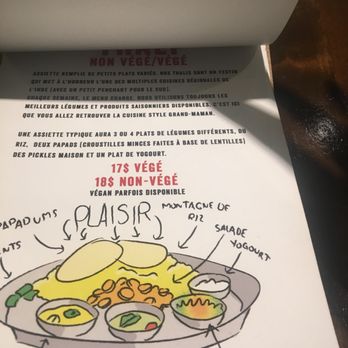 NON VÉGÉ/VÉGÉ
ASSIETTE REMPLIE DE PETITS PLATS VARIÉS. UNE THALIS SONT UN FESTIN
QUI MET À L'HONNEUR L'UNE DES MULTIPLES CUISINES RÉGIONALES DE
L'INDE (AVEC UN PETIT PENCHANT POUR LE SUD).
CHAQUE SEMAINE, LE MENU CHANGE. NOUS UTILISONS TOUJOURS LES
MEILLEURS LÉGUMES ET PRODUITS SAISONNIERS DISPONIBLES. C'EST ICI
QUE VOUS ALLEZ RETROUVER LA CUISINE STYLE GRAND-MAMAN.
UNE ASSIETTE TYPIQUE AURA 3 OU 4 PLATS DE LÉGUMES DIFFÉRENTS, DU
RIZ, DEUX PAPADS (CROUSTILLES MINCES FAITES À BASE DE LENTILLES)
DES PICKLES MAISON ET UN PLAT DE YOGOURT.
17$ VÉGÉ
18$ NON-VÉGÉ
VÉGAN PARFOIS DISPONIBLE
PAPADUMS
PLAISIR
MONTAGNE DE
RIZ
SALADE
YOGOURT